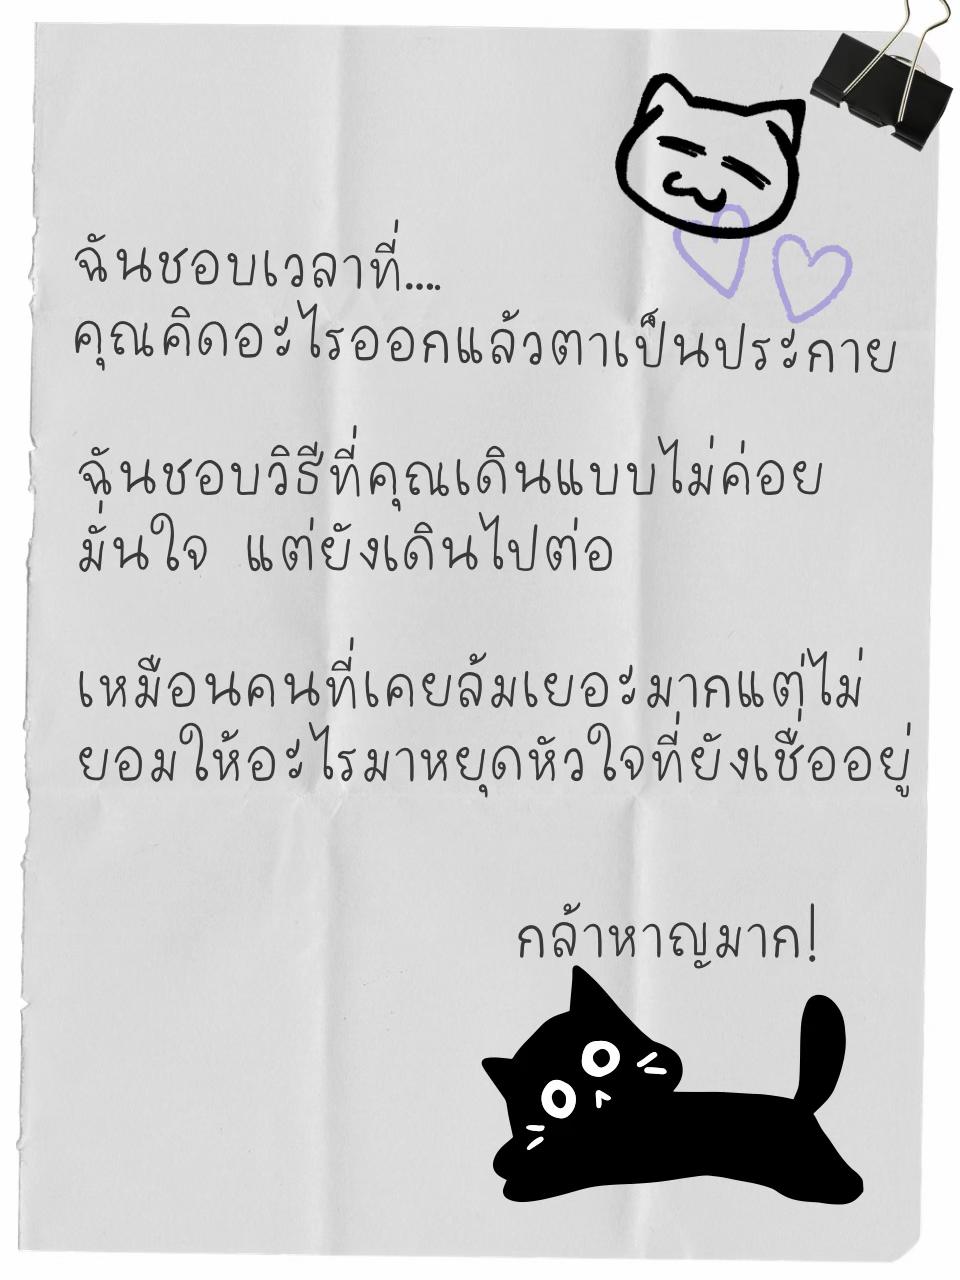 ฉันชอบเวลาที่....
คุณคิดอะไรออกแล้วตาเป็นประกาย
ฉันชอบวิธีที่คุณเดินแบบไม่ค่อย
มั่นใจ แต่ยังเดินไปต่อ
เหมือนคนที่เคยล้มเยอะมากแต่ไม่
ยอมให้อะไรมาหยุดหัวใจที่ยังเชื่ออยู่
กล้าหาญมาก!